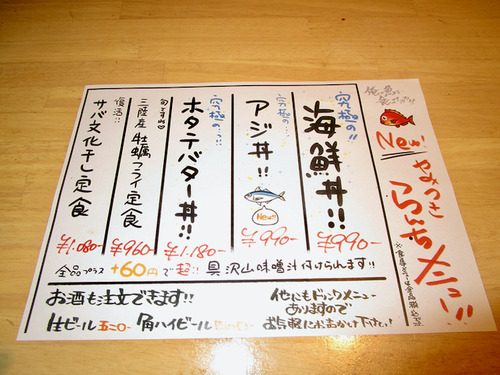 New!
やみつき
らんちメニュー!!
究極の!!
海鮮丼!!
¥990-
究極の…
アジ丼!!
New!!
¥990-
究極の…
ホタテバター丼!!
¥1.180-
旬ですね♡
三陸産 牡蠣フライ定食
¥960-
復活!!
サバ文化干し定食
¥1.080-
全品プラス +60円で超!! 具沢山味噌汁付けられます!!
お酒も注文できます!!
生ビール 五二〇- 角ハイボール
他にもドリンクメニュー
ありますので
お気軽にお声かけ下さい!